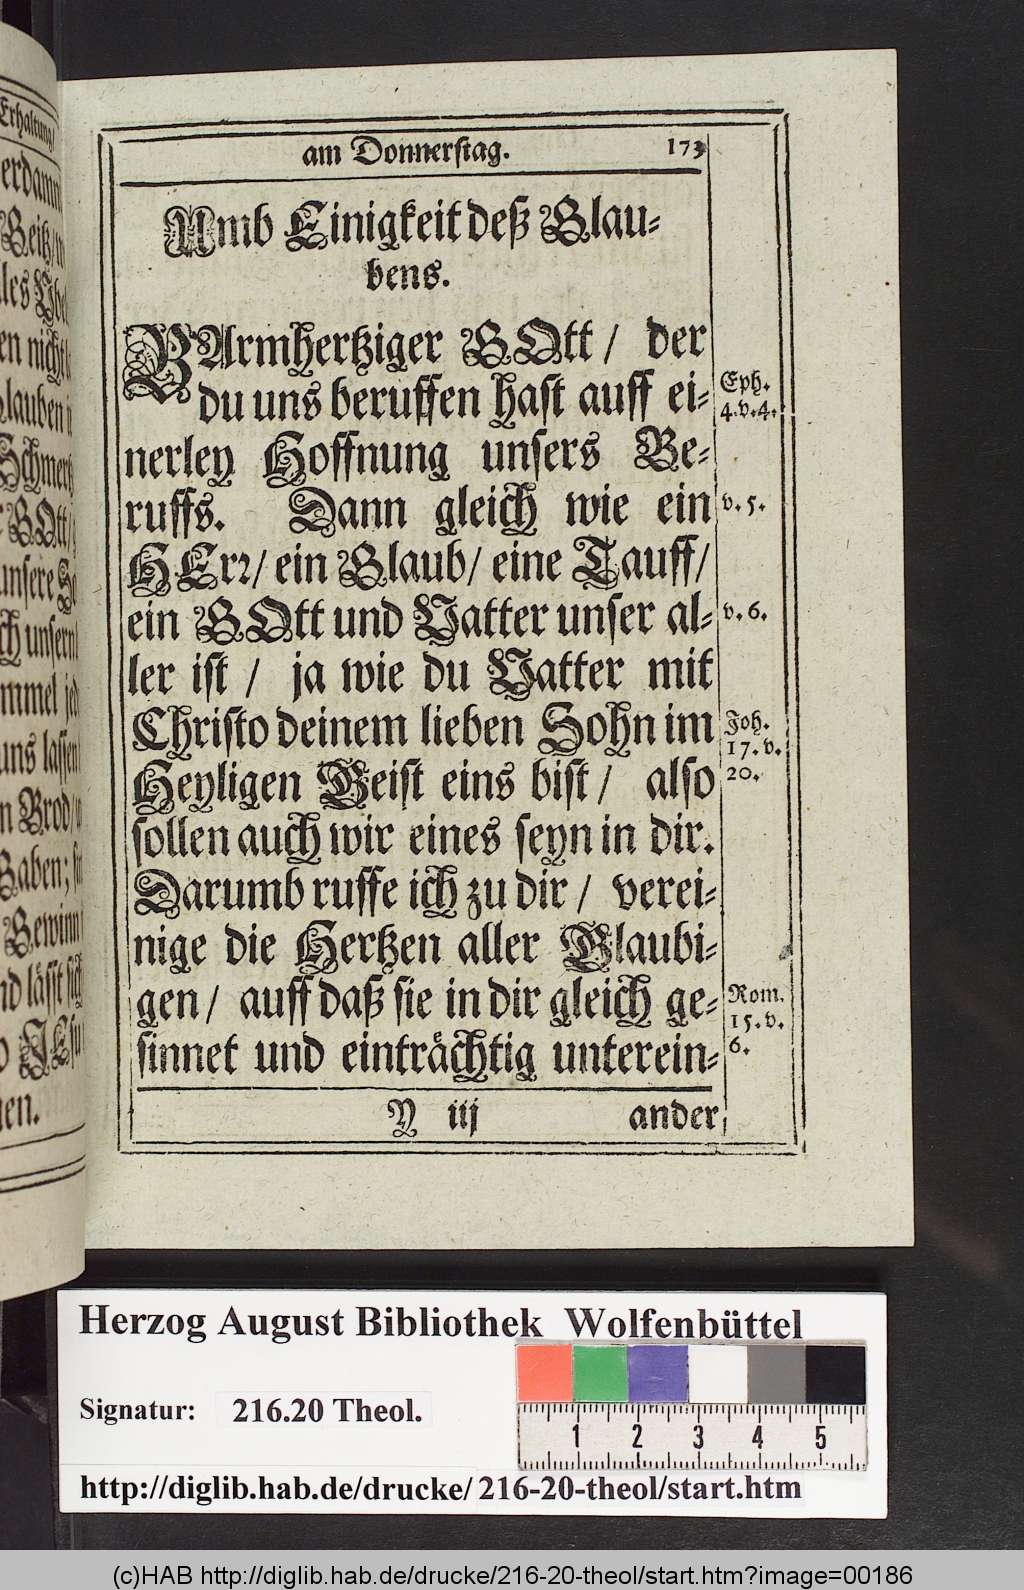 Erhaltung/
am Donnerstag. 173
Umb Einigkeit deß Glau-
bens.
BArmhertziger GOtt / der
du uns beruffen hast auff ei-
nerley Hoffnung unsers Be-
ruffs. Dann gleich wie ein
HErr/ ein Glaub/ eine Tauff/
ein GOtt und Vatter unser al-
ler ist / ja wie du Vatter mit
Christo deinem lieben Sohn im
Heyligen Geist eins bist / also
sollen auch wir eines seyn in dir.
Darumb ruffe ich zu dir / verei-
nige die Hertzen aller Glaubi-
gen / auff daß sie in dir gleich ge-
sinnet und einträchtig unterein-
Y iij ander
Eph.
4.v.4.
v.5.
v.6.
Joh.
17.v.
20.
Rom.
15.v.
6.
Herzog August Bibliothek Wolfenbüttel
Signatur: 216.20 Theol.
1 2 3 4 5
http://diglib.hab.de/drucke/ 216-20-theol/start.htm
(c)HAB http://diglib.hab.de/drucke/216-20-theol/start.htm?image=00186